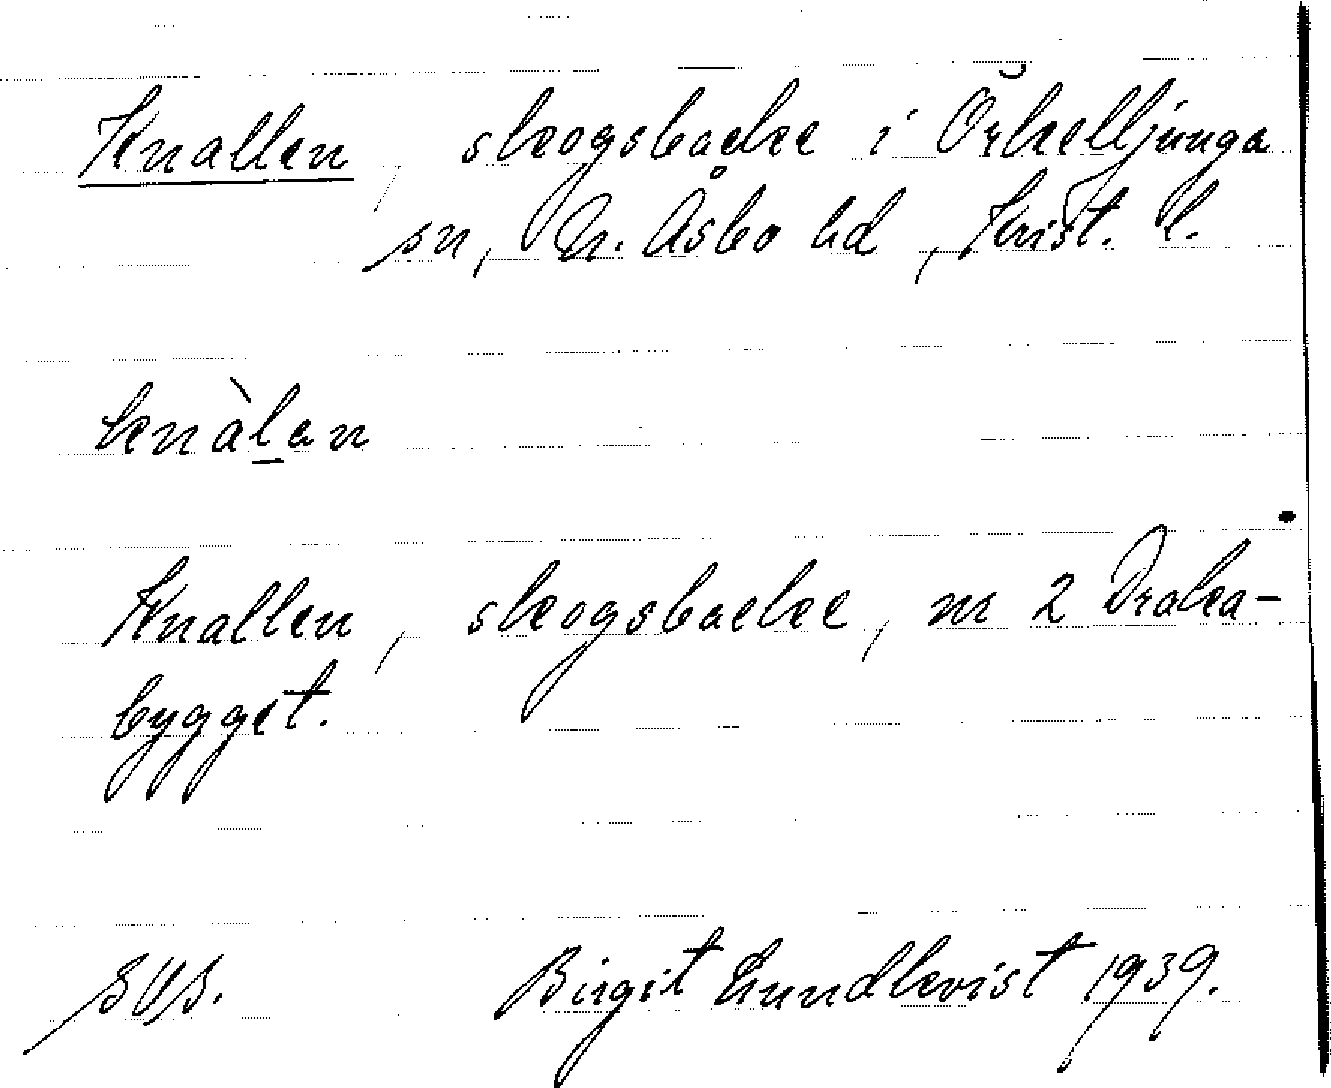 Knallen, skogsbacke i Örkelljunga
sn, N. Åsbo hd, Krist. l.
knàlan
Knallen, skogsbacke, m 2 Draka-
bygget.
SOS. Birgit Lundkvist 1939.